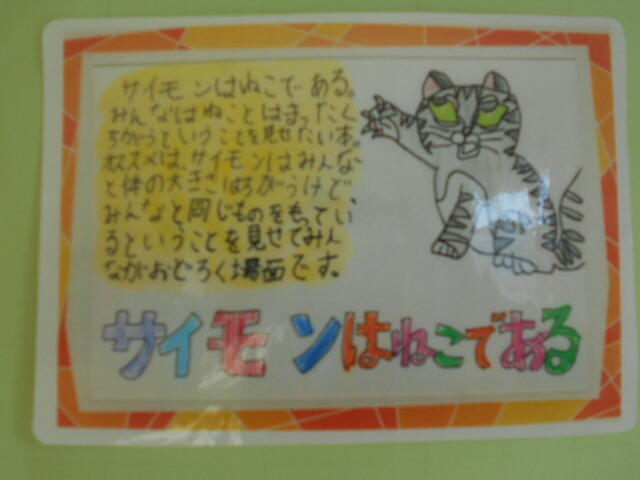 サイモンはねこである。
みんなはねことはまったく
ちがうということを見せたい本。
オススメは、サイモンはみんな
と体の大きさはちがうけど、
みんなと同じものをもってい
るということを見せてみん
ながおどろく場面です。
サイモンはねこである